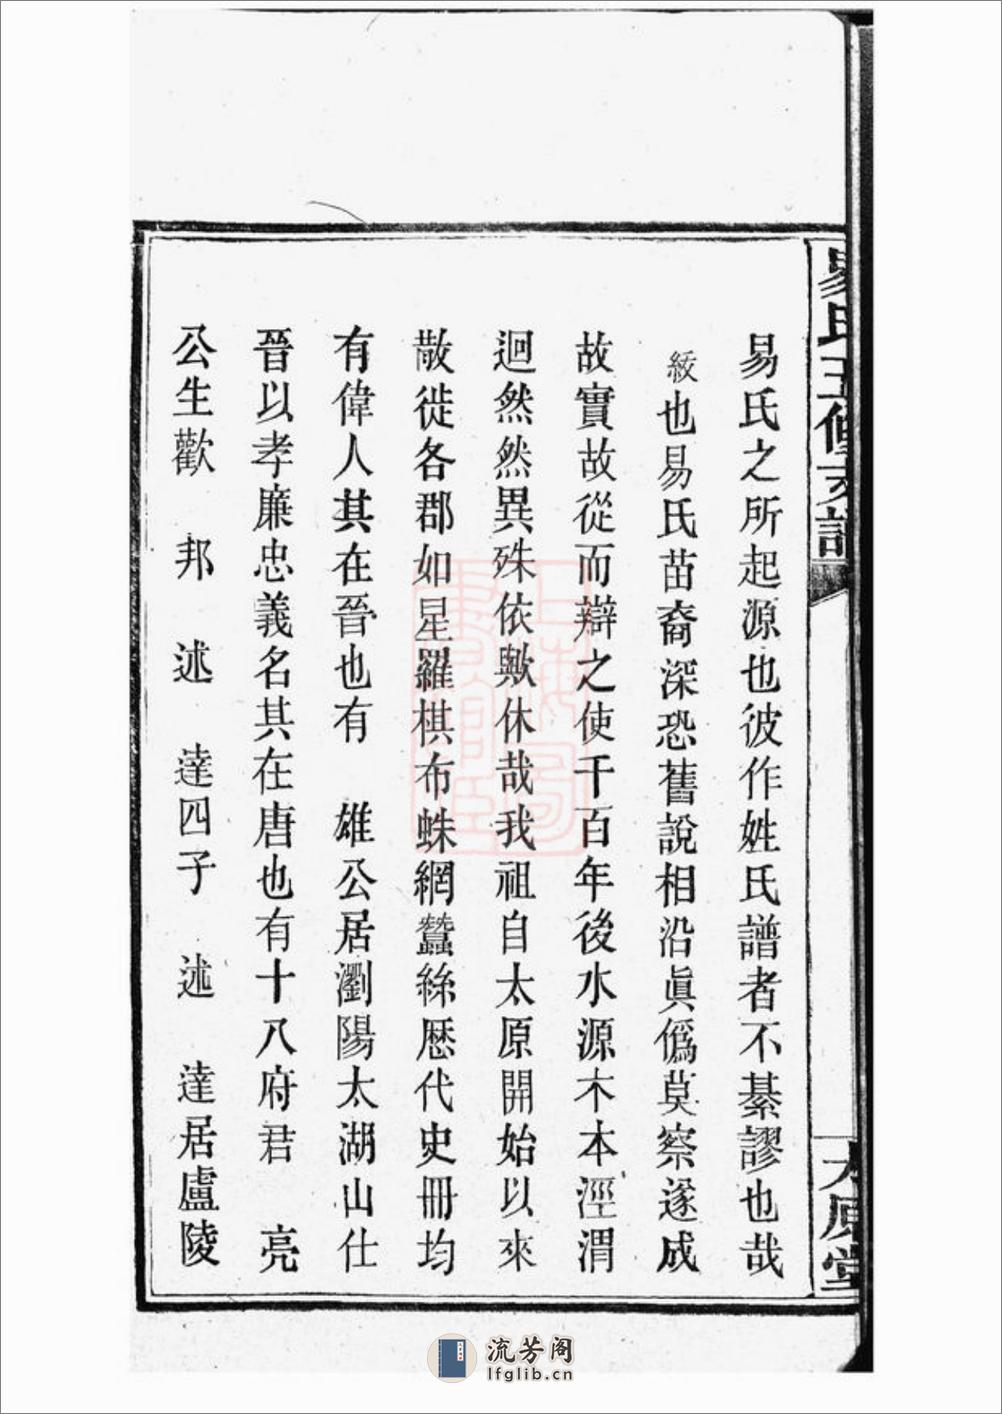 易氏五修支譜
太原堂
易氏之所起源也彼作姓氏譜者不綦謬也哉
綏也易氏苗裔深恐舊說相沿眞僞莫察遂成
故實故從而辯之使千百年後水源木本涇渭
迥然然異殊依歟休哉我祖自太原開始以來
散徙各郡如星羅棋布蛛網蠶絲歷代史冊均
有偉人其在晉也有 雄公居瀏陽太湖山仕
晉以孝廉忠義名其在唐也有十八府君 亮
公生歡 邦 述 達四子 述 達居盧陵
上海圖書館藏
流芳阁
lfglib.cn